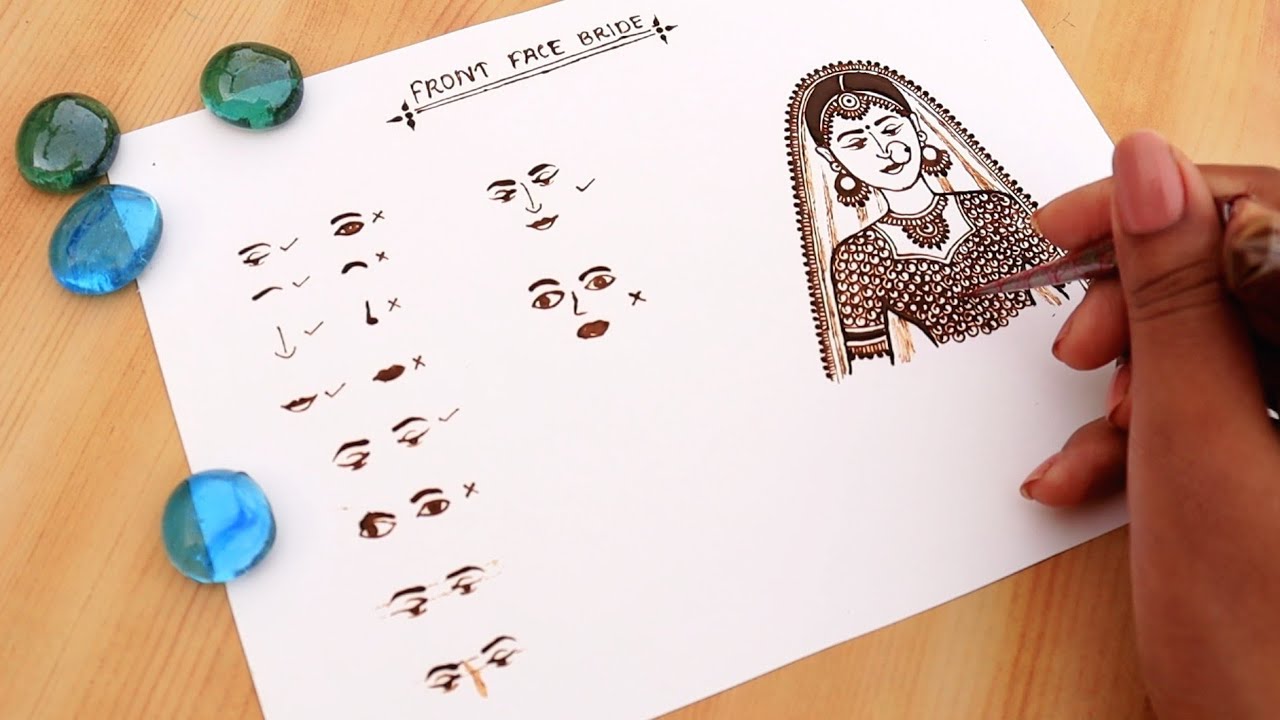 FRONT FACE BRIDE